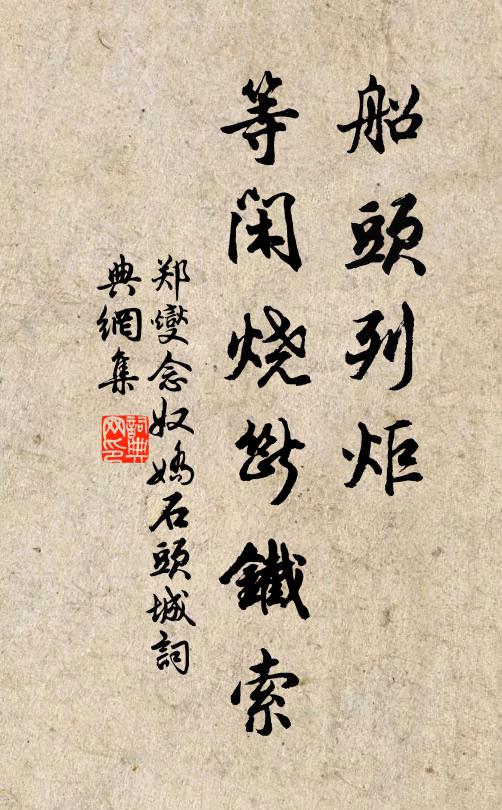 船頭列炬
等閑烧斷鐵索
郑燮念奴嬌石頭城詞
典網集
詞典網印